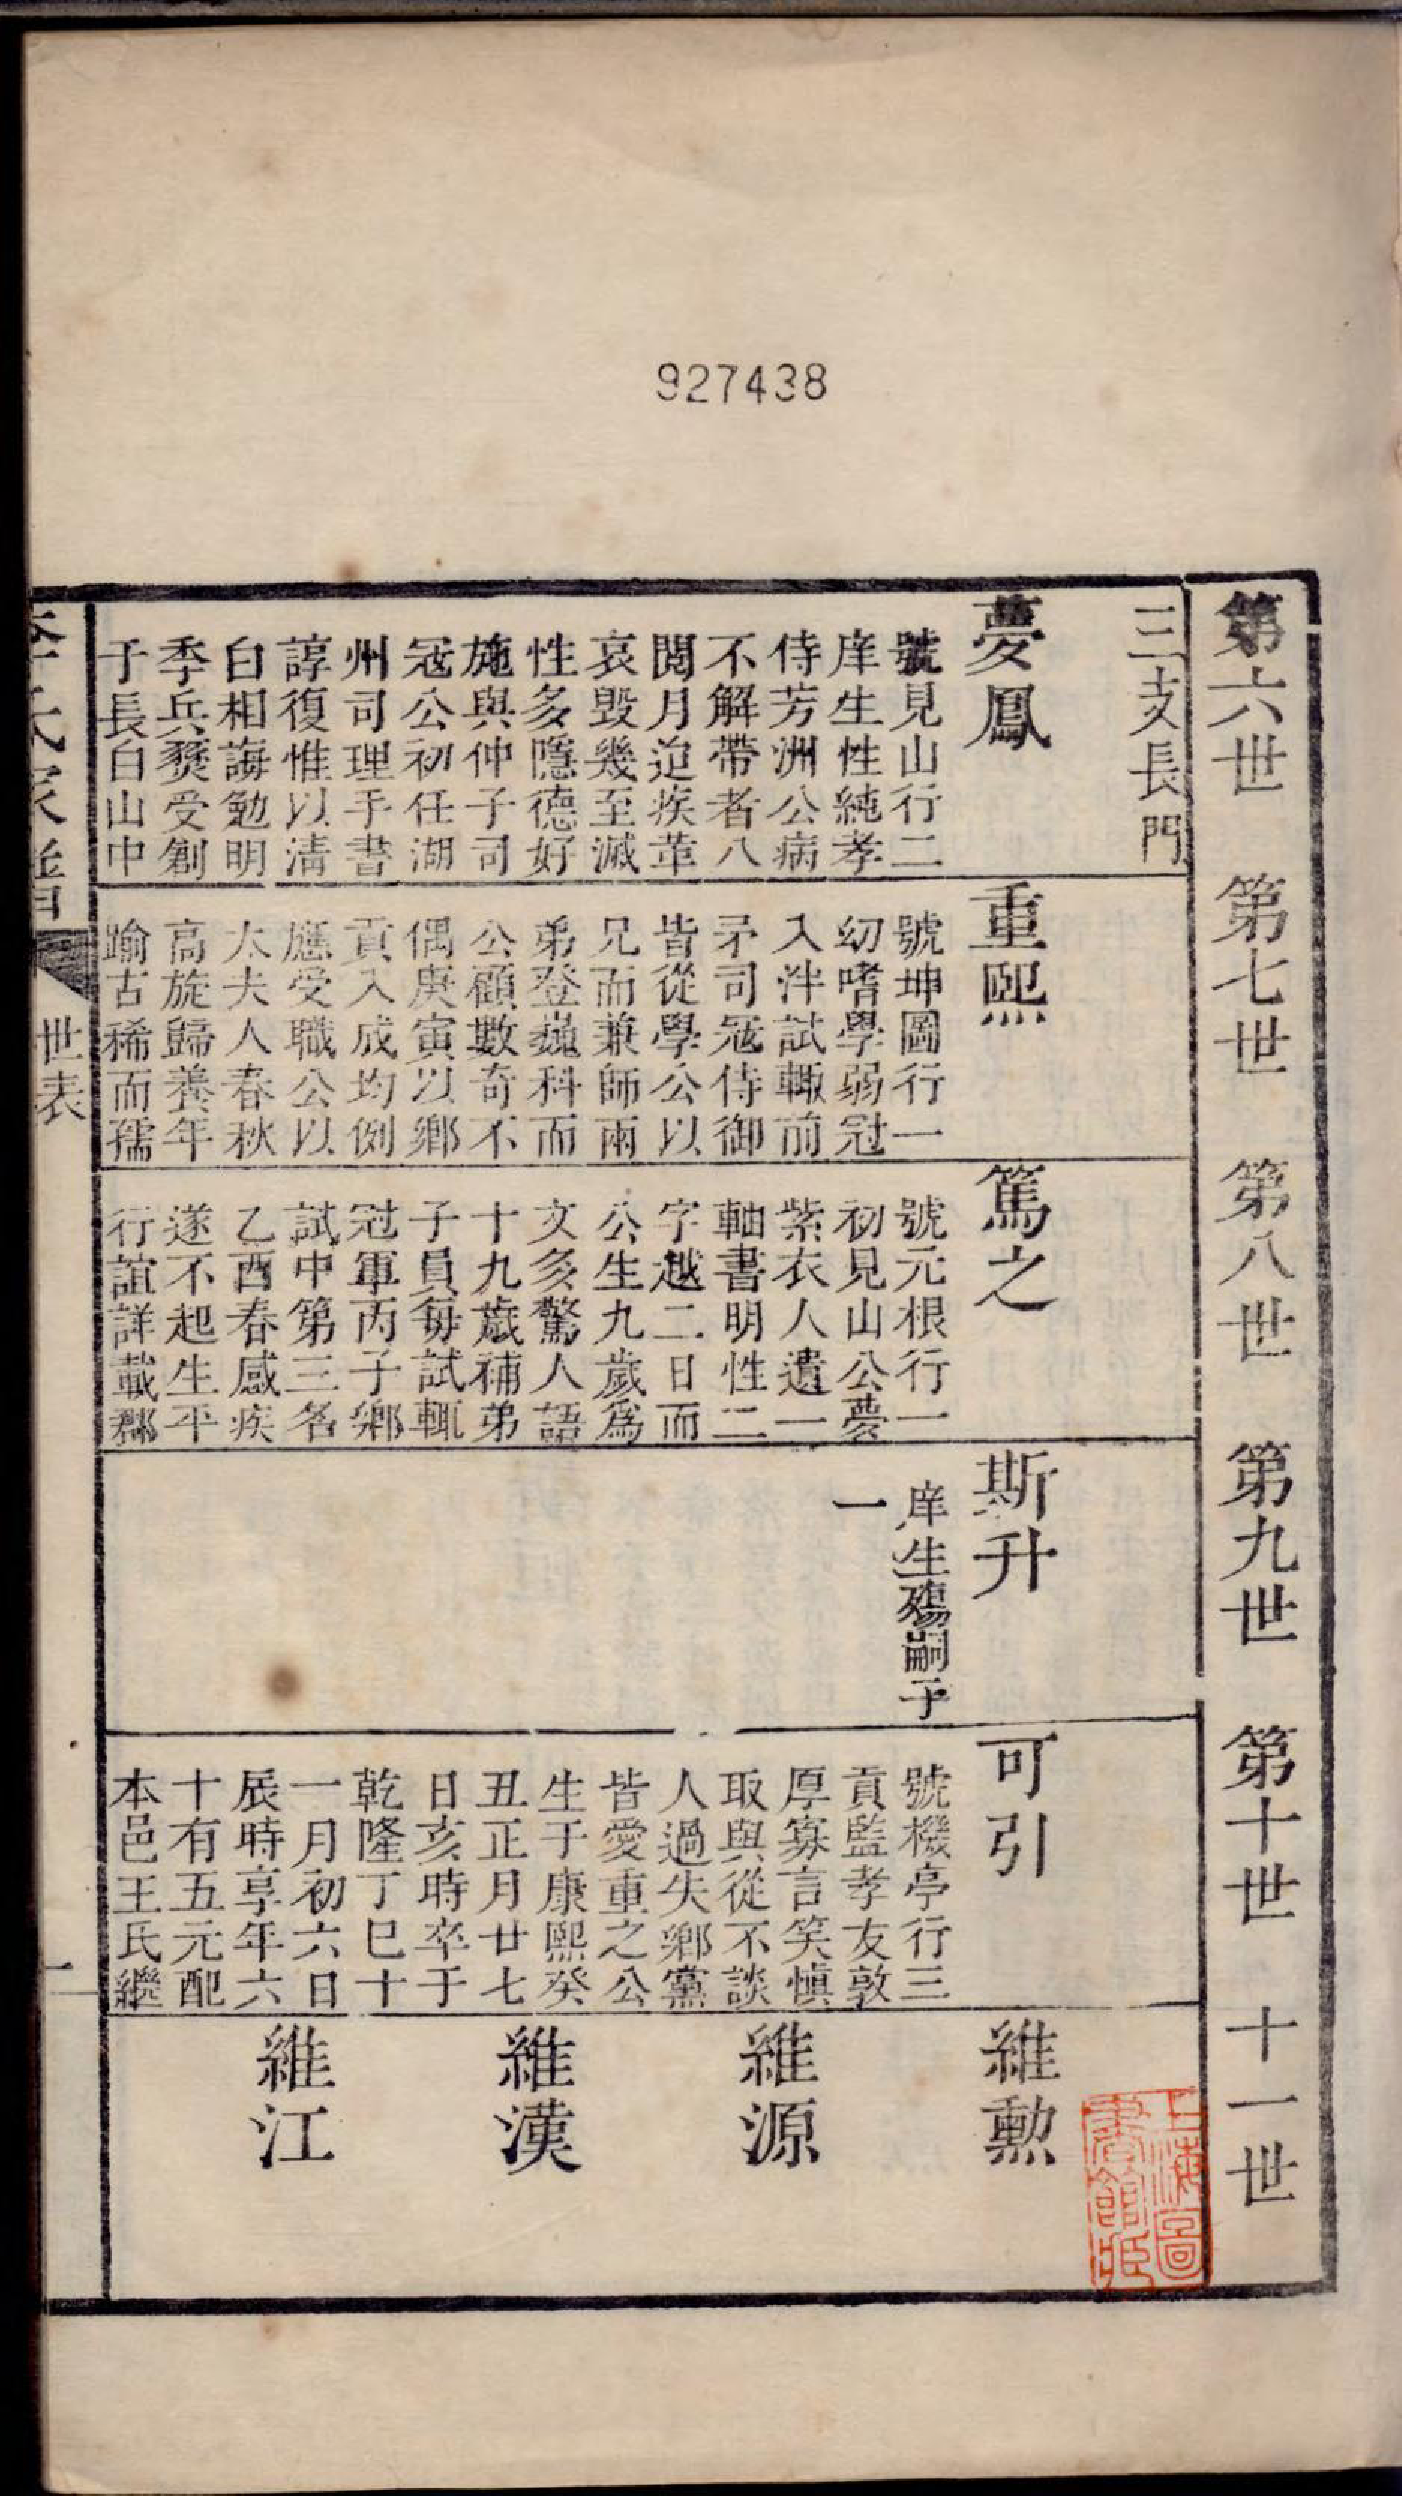 927438
第六世
第七世
第八世
第九世
第十世
十一世
三支長門
夢鳳
號見山行二
庠生性純孝
侍芳洲公病
不解帶者八
閱月迨疾革
哀毀幾至滅
性多隱德好
施與仲子司
冦公初任湖
州司理手書
諄復惟以清
白相誨勉明
季兵燹受創
于長白山中
重熙
號坤圖行一
幼嗜學弱冠
入泮試輒前
矛司冦侍御
皆從學公以
兄而兼師兩
弟登巍科而
公顧數奇不
偶庚寅以鄉
貢入成均例
應受職公以
太夫人春秋
高旋歸養年
踰古稀而孺
篤之
號元根行一
初見山公夢
紫衣人遺一
軸書明性二
字越二日而
公生九歲為
文多驚人語
十九歲補弟
子員每試輒
冠軍丙子鄉
試中第三名
乙酉春感疾
遂不起生平
行誼詳載郡
斯升
庠生殤嗣子
一
可引
號機亭行三
貢監孝友敦
厚寡言笑慎
取與從不談
人過失鄉黨
皆愛重之公
生于康熙癸
丑正月廿七
日亥時卒于
乾隆丁巳十
一月初六日
辰時享年六
十有五元配
本邑王氏繼
維勲
維源
維漢
維江
上海圖
書館藏
李氏家譜
世表
一